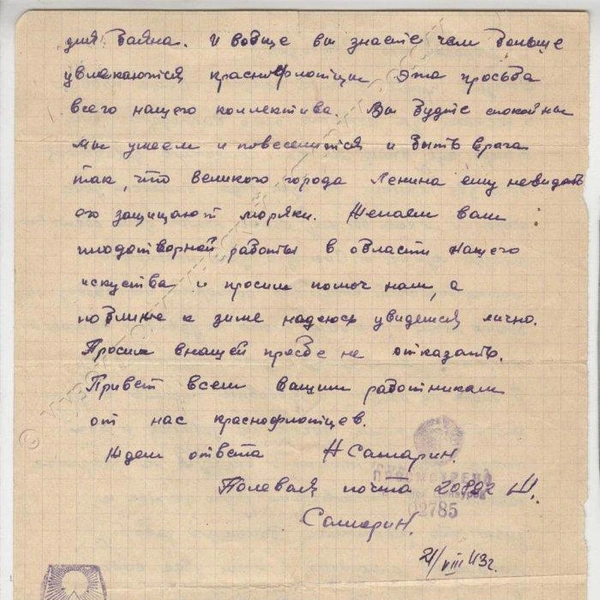 для Баяна. И вобще вы знаете чем больше
увлекаются краснофлотцы. Эта просьба
всего нашего коллектива. Вы будте спокойны
мы умеем и повеселится и бить врага
так, что великого города Ленина ему невидать
его защищают моряки. Желаем вам
плодотворной работы в области нашего
искуства и просим помоч нам, а
поближе к зиме надеюсь увидемся лично.
Просим внашей прозбе не отказать.
Привет всем вашим работникам
от нас краснофлотцев.
Ждем ответа Н Самарин.
Полевая почта
Самарин.
2785
21/VIII 43г.